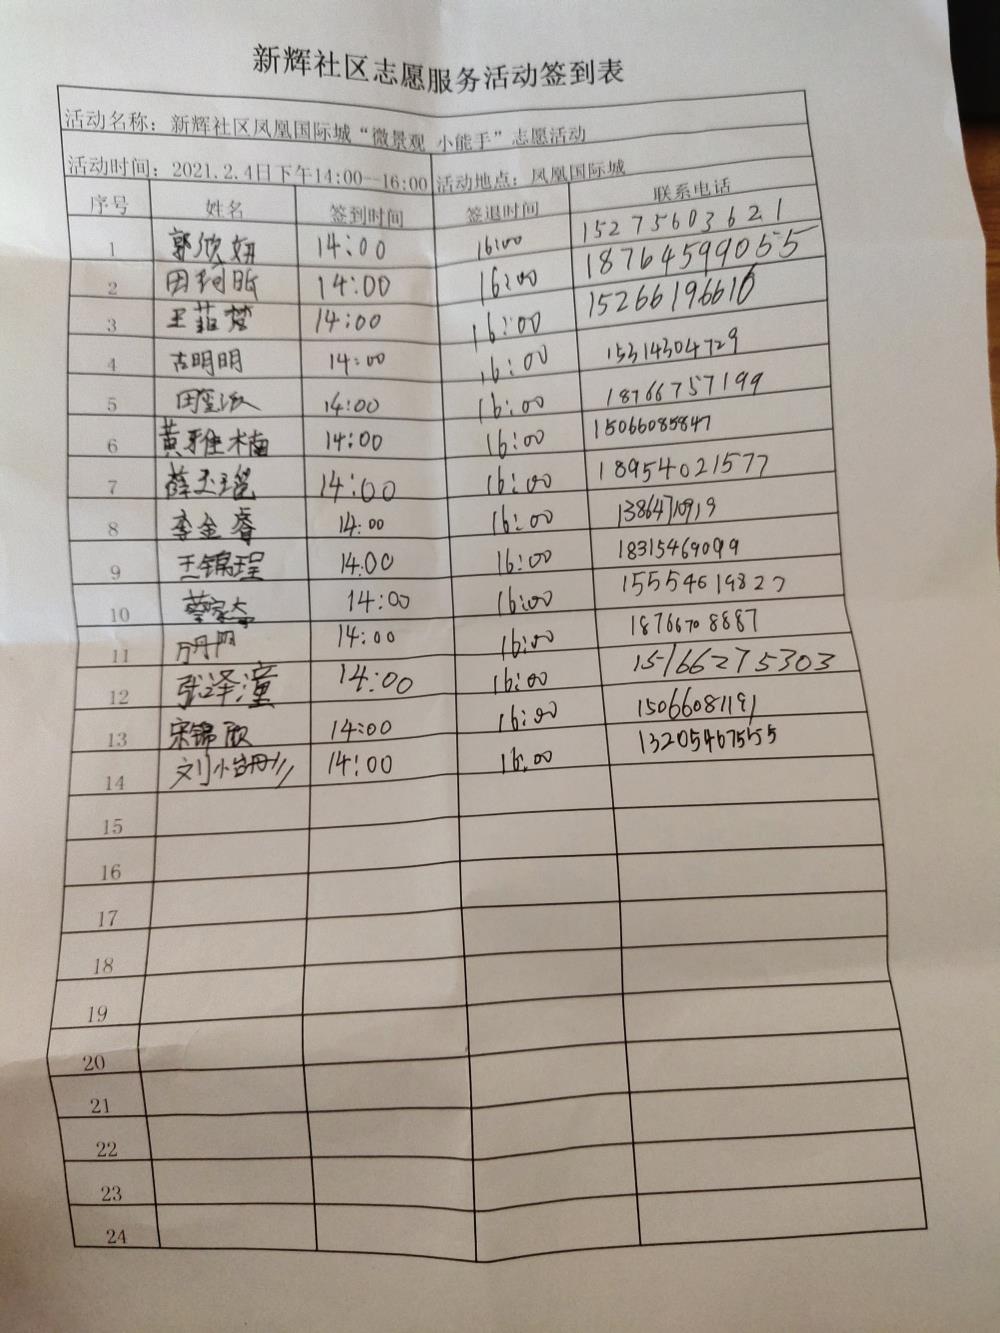 新辉社区志愿服务活动签到表
活动名称：新辉社区凤凰国际城“微景观 小能手”志愿活动
活动时间：2021.2.4日下午14:00--16:00 活动地点：凤凰国际城
序号 姓名 签到时间 签退时间 联系电话
1 郭欣妍 14:00 16:00 15275603621
2 田珂昕 14:00 16:00 18764599055
3 王菲梦 14:00 16:00 15266196616
4 古明明 14:00 16:00 15314304729
5 田 14:00 16:00 18766757199
6 黄雅楠 14:00 16:00 15066085847
7 薛玉瑶 14:00 16:00 18954021577
8 李金睿 14:00 16:00
9 王锦珵 14:00 16:00 18315469099
10 蔡 14:00 16:00 15554619827
11 14:00 16:00 18766708887
12 张泽潼 14:00 16:00 15166275303
13 宋锦欣 14:00 16:00 15066081191
14 刘 14:00 16:00 13205467555
15
16
17
18
19
20
21
22
23
24